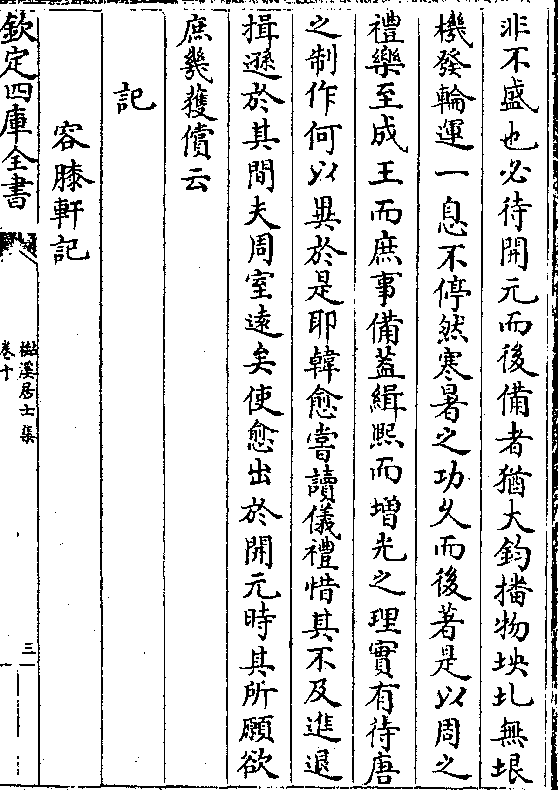 非不盛也必待開元而後備者猶大鈞播物坱圠無垠
機發輪運一息不停然寒暑之功乆而後著是以周之
禮樂至成王而庶事備葢緝熈而增光之理實有待唐
之制作何以異於是耶韓愈嘗讀儀禮惜其不及進退
揖遜於其間夫周室逺矣使愈出於開元時其所願欲
庶㡬獲償云
記
容膝軒記
欽定四庫全書
溪居士集
卷十
三